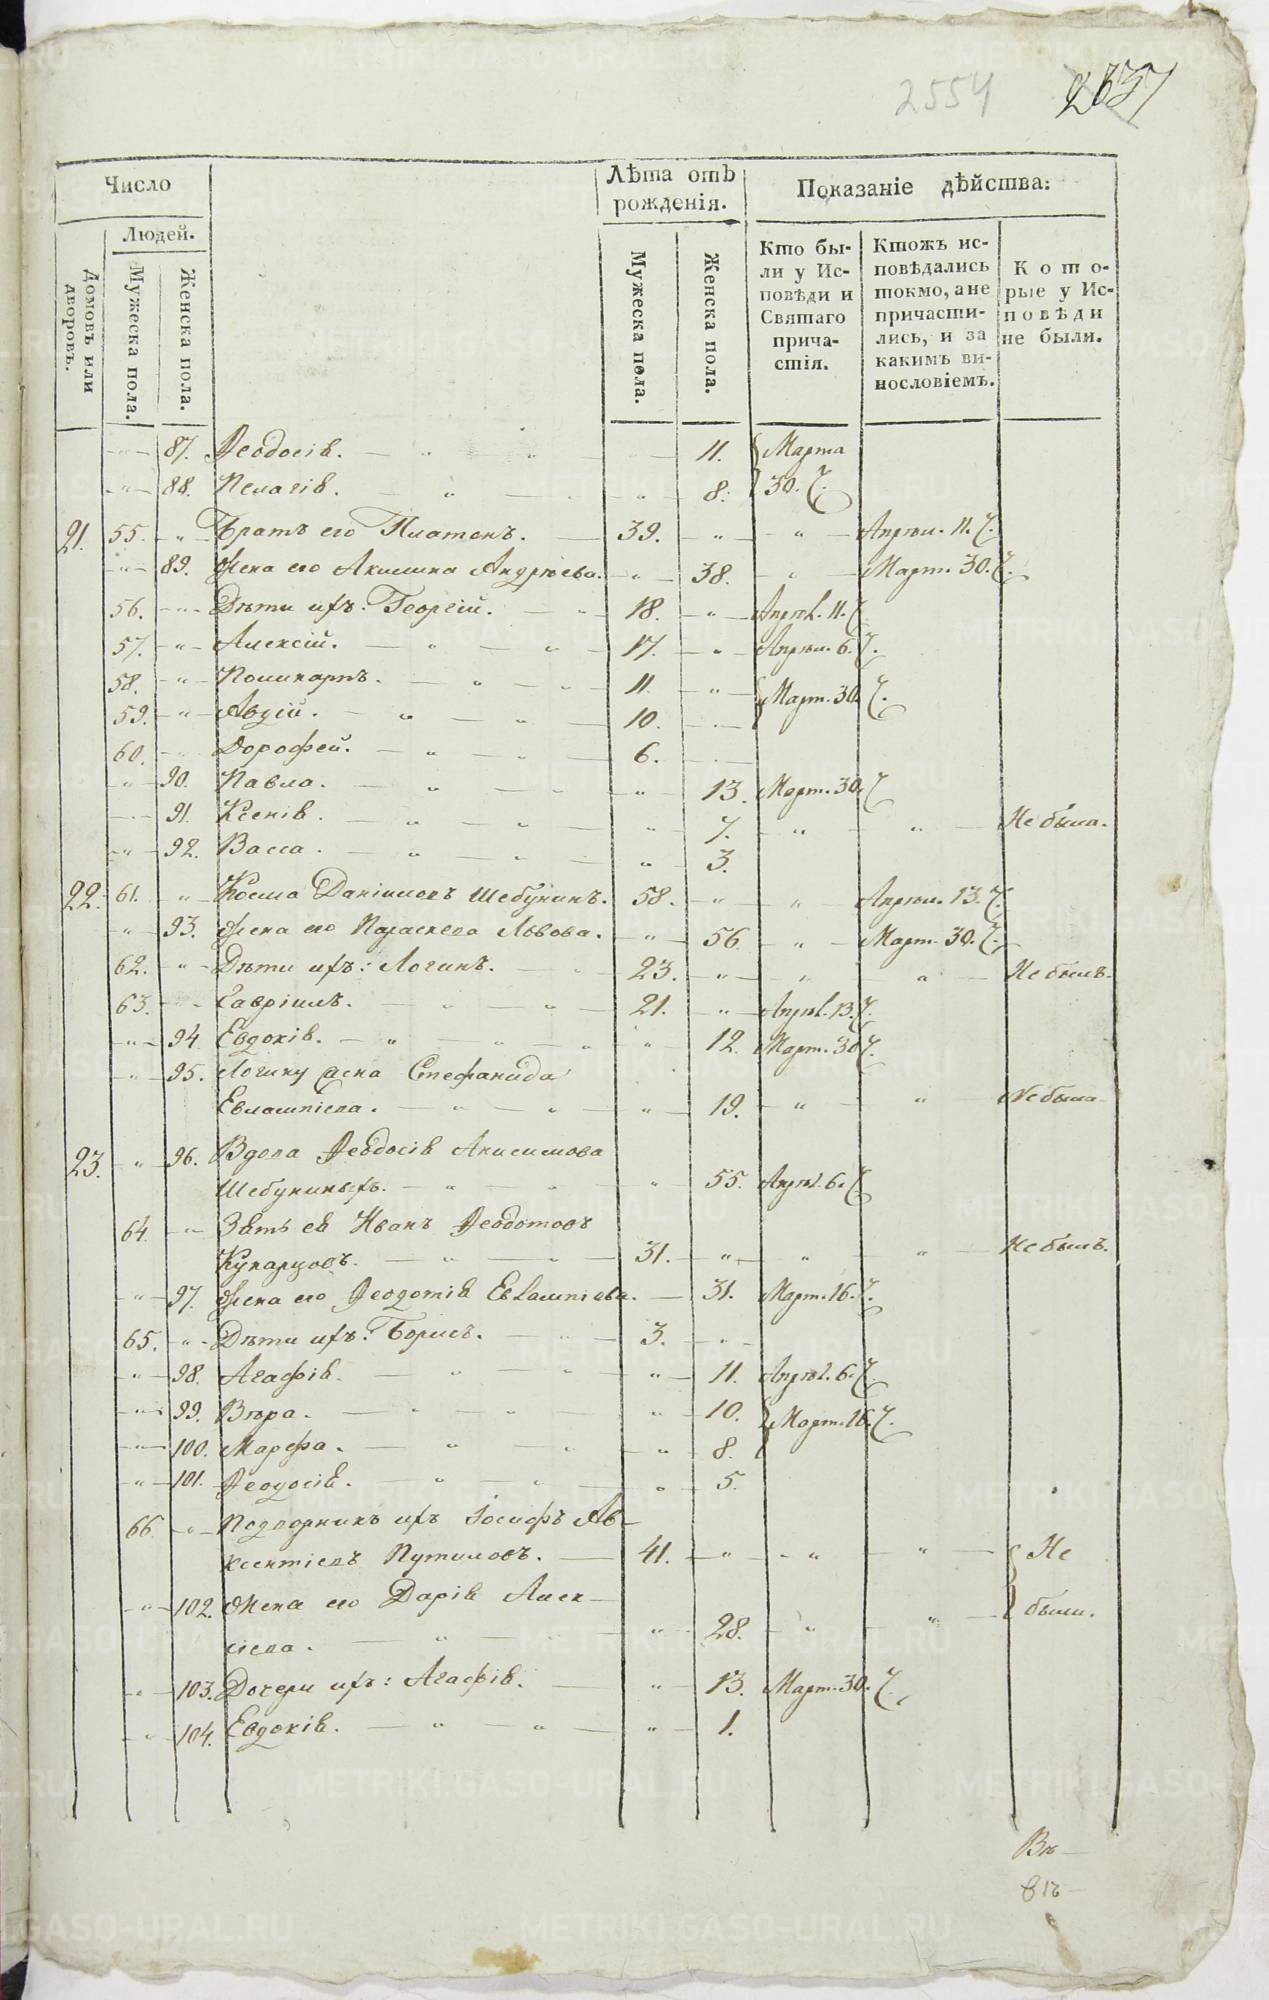 2554 2637
Число
Лѣта отъ рожденія.
Показаніе дѣйства:
Людей.
Домовъ или дворовъ.
Мужеска пола.
Женска пола.
Мужеска пола.
Женска пола.
Кто бы-
ли у Ис-
повѣди и
Святаго
прича-
стія.
Ктожъ ис-
повѣдались
токмо, а не
причасти-
лись, и за
какимъ ви-
нословіемъ.
Кото-
рые у Ис-
повѣди
не были.
87. Ѳеодосія. 11. Марта
88. Пелагія. 8. 30. Ч.
21. 55. Братъ его Платонъ. 39. Апрѣл. 11. Ч.
89. Жена его Акилина Андрѣева. 38. Март. 30. Ч.
56. Дѣти ихъ: Георгій. 18. Апрѣл. 11. Ч.
57. Алексій. 17. Апрѣл. 6. Ч.
58. Поликарпъ. 11. Март. 30. Ч.
59. Авдій. 10.
60. Дорофей. 6.
90. Павла. 13. Март. 30. Ч.
91. Ксенія. 7. Не была.
92. Васса. 3.
22. 61. Косма Даніиловъ Шебунинъ. 58. Апрѣл. 13. Ч.
93. Жена его Параскева Львова. 56. Март. 30. Ч.
62. Дѣти ихъ: Логинъ. 23. Не былъ.
63. Гавріилъ. 21. Апрѣл. 13. Ч.
94. Евдокія. 12. Март. 30. Ч.
95. Логину жена Стефанида
Евлампіева. 19. Не была
23. 96. Вдова Ѳеодосія Анисимова
Шебуниныхъ. 55. Апрѣл. 6. Ч.
64. Зять ея Иванъ Ѳеодотовъ
Кунарцовъ. 31. Не былъ.
97. Жена его Ѳеодотія Евлампіева. 31. Март. 16. Ч.
65. Дѣти ихъ: Борисъ. 3.
98. Агафія. 11. Апрѣл. 6. Ч.
99. Вѣра. 10. Март. 16. Ч.
100. Марфа. 8.
101. Ѳеодосія. 5.
66. Подворникъ ихъ Іосифъ Ав-
ксентіевъ Путиловъ. 41. Не
102. Жена его Дарія Алек-
сіева. 28. были.
103. Дочери ихъ: Агафія. 13. Март. 30. Ч.
104. Евдокія. 1.
Въ